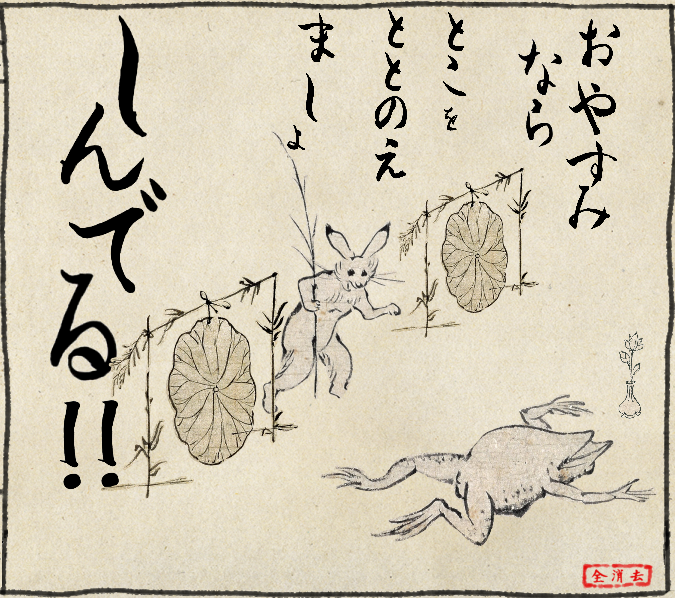 おやすみ
なら
とこを
ととのえ
ましょ
しんでる!!
全消去